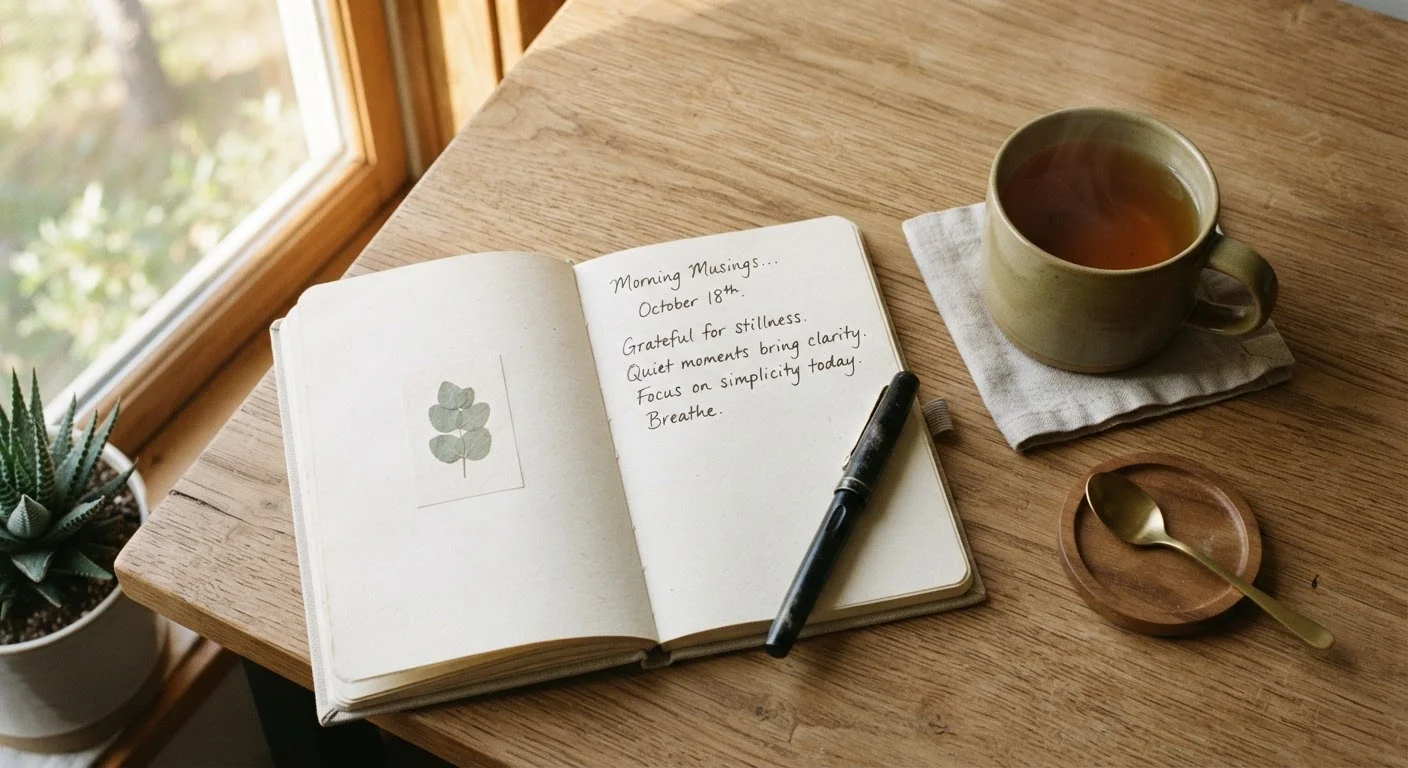 Morning Musings...
October 18th.
Grateful for stillness.
Quiet moments bring clarity.
Focus on simplicity today.
Breathe.